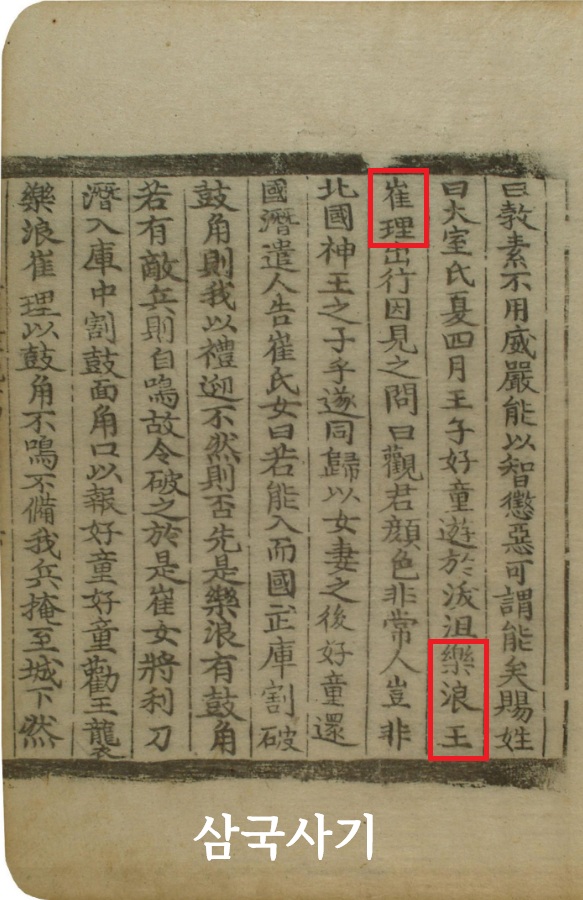 曰教素不用威嚴能以智懲惡可謂能矣賜姓
曰大室氏夏四月王子好童遊於沃沮樂浪王
崔理出行因見之問曰觀君顔色非常人豈非
北國神王之子乎遂同歸以女妻之後好童還
國潛遣人告崔氏女曰若能入而國武庫割破
鼓角則我以禮迎不然則否先是樂浪有鼓角
若有敵兵則自鳴故令破之於是崔女將利刀
潛入庫中割鼓面角口以報好童好童勸王襲
樂浪崔理以鼓角不鳴不備我兵掩至城下然
삼국사기